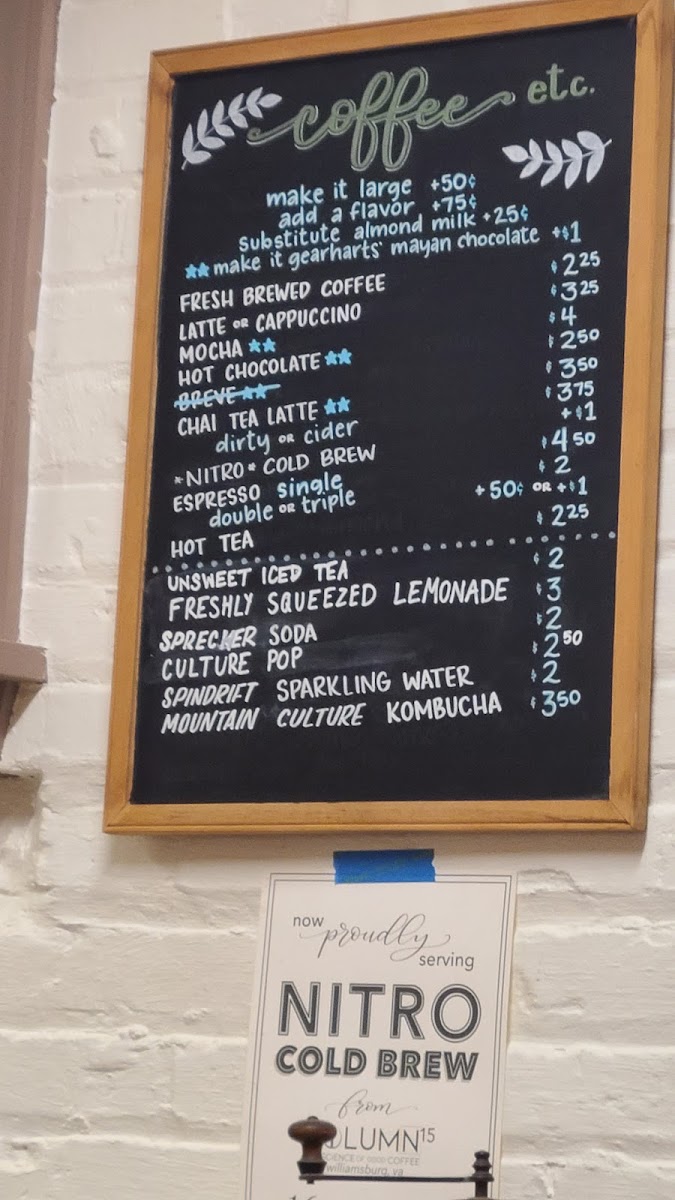 coffee etc.
make it large +50¢
add a flavor +75¢
substitute almond milk +25¢
**make it gearharts' mayan chocolate +$1
FRESH BREWED COFFEE $2.25
LATTE OR CAPPUCCINO $3.25
MOCHA ** $4
HOT CHOCOLATE ** $2.50
BREVE ** $3.50
CHAI TEA LATTE ** $3.75
dirty or cider +$1
*NITRO* COLD BREW $4.50
ESPRESSO single $2
double or triple +50¢ OR +$1
HOT TEA $2.25
UNSWEET ICED TEA $2
FRESHLY SQUEEZED LEMONADE $3
SPRECHER SODA $2
CULTURE POP $2.50
SPINDRIFT SPARKLING WATER $2
MOUNTAIN CULTURE KOMBUCHA $3.50
now proudly serving
NITRO
COLD BREW
from
LUMN15
SCIENCE OF GOOD COFFEE
williamsburg, va